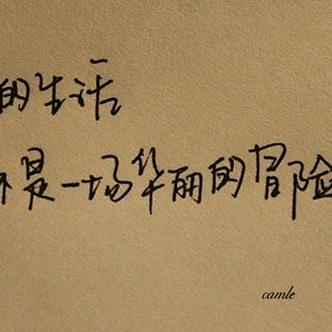 的生活
不是一场华丽的冒险
camle